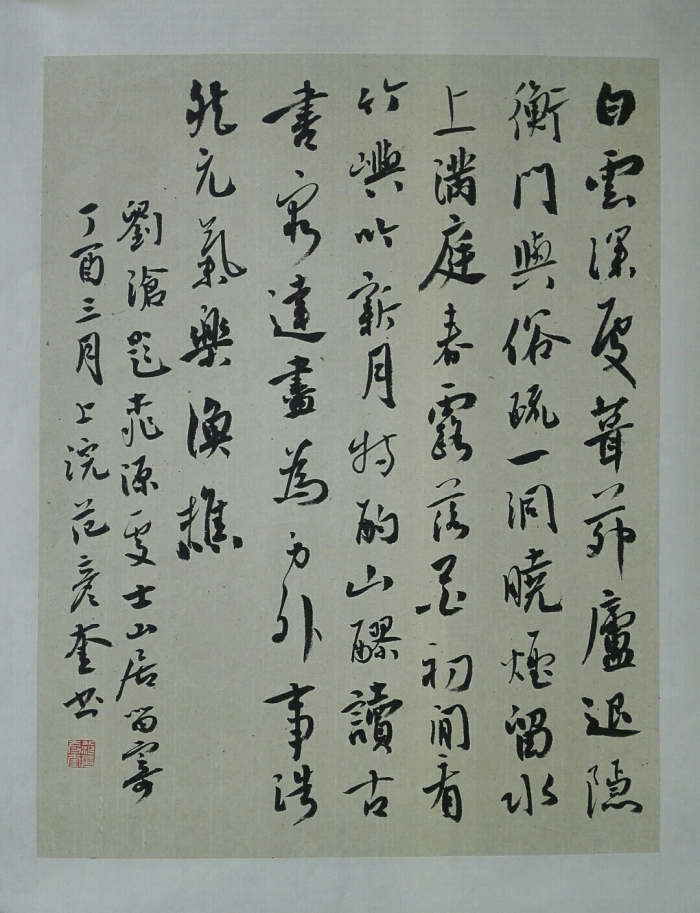 白雲深處葺茆廬退隱
衡門與俗疏一洞曉煙留水
上滿庭春露落花初閒看
竹嶼吟新月特酌山醪讀古
書窮達盡為身外事浩
然元氣樂漁樵
劉滄題桃源處士山居留寄
丁酉三月上浣范彥奎书